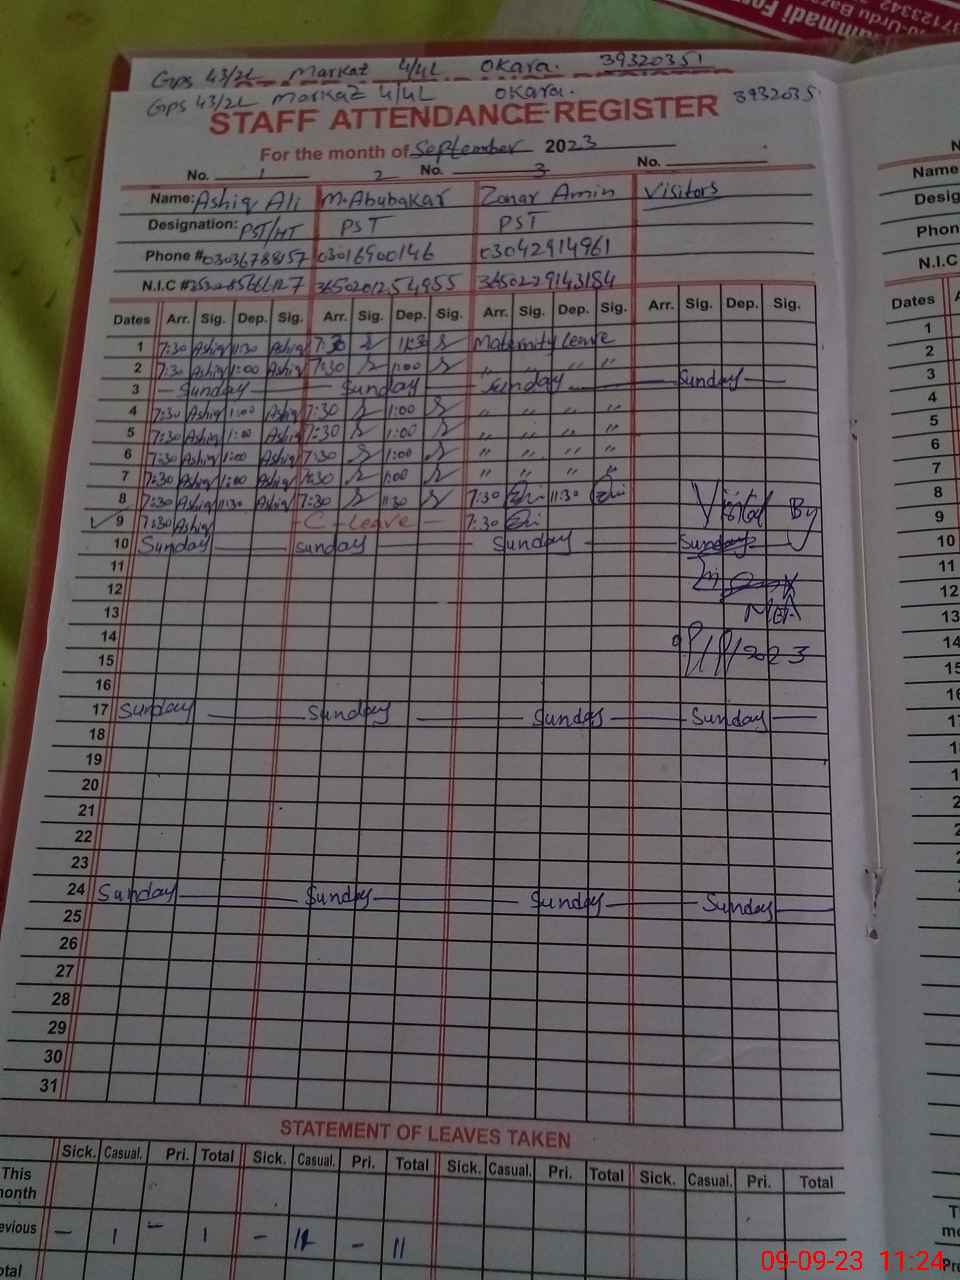 GPS 43/2L Markaz 4/4L Okara. 39320351
GPS 43/2L Markaz 4/4L Okara. 3932035
STAFF ATTENDANCE REGISTER
For the month of September 2023
No. 1 2 No. 3 No.
Name: Ashiq Ali M. Abubakar Zonar Amin Visitors
Designation: PST/HT PST PST
Phone # 03036788157 03016900146 03042914961
N.I.C # 3650201254955 3650229143184
Dates Arr. Sig. Dep. Sig. Arr. Sig. Dep. Sig. Arr. Sig. Dep. Sig. Arr. Sig. Dep. Sig.
1 7:30 Ashiq 11:30 Ashiq 7:30 11:30 Maternity Leave
2 7:30 Ashiq 1:00 Ashiq 7:30 1:00 " " " "
3 Sunday Sunday Sunday Sunday
4 7:30 Ashiq 1:00 Ashiq 7:30 1:00 " " " "
5 7:30 Ashiq 1:00 Ashiq 7:30 1:00 " " " "
6 7:30 Ashiq 1:00 Ashiq 7:30 1:00 " " " "
7 7:30 Ashiq 1:00 Ashiq 7:30 1:00 " " " "
8 7:30 Ashiq 11:30 Ashiq 7:30 11:30 7:30 11:30 Visited By
9 7:30 Ashiq C-Leave 7:30
10 Sunday Sunday Sunday Sunday
11
12
13 MEA
14
15 9/9/2023
16
17 Sunday Sunday Sunday Sunday
18
19
20
21
22
23
24 Sunday Sunday Sunday Sunday
25
26
27
28
29
30
31
STATEMENT OF LEAVES TAKEN
Sick. Casual. Pri. Total Sick. Casual. Pri. Total Sick. Casual. Pri. Total Sick. Casual. Pri. Total
This
onth
evious – 1 – 1 – 11 – 11
otal
09-09-23 11:24